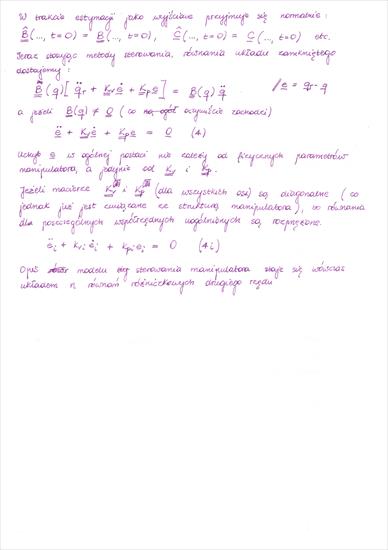 W trakcie estymacji jako wyjściowe przyjmuje się normalnie:
B̂(..., t=0) = B(..., t=0), Ĉ(..., t=0) = C(..., t=0) etc.
Teraz stosując metody sterowania, równania układu zamkniętego
dostajemy:
B̂(q)[q̈r + Kv ė + Kp e] = B(q) q̈ // e = qr - q
a jeżeli B(q) ≠ 0 (co na ogół oczywiście zachodzi)
ë + Kv ė + Kp e = 0 (4)
Uchyb e w ogólnej postaci nie zależy od fizycznych parametrów
manipulatora, a jedynie od Kv i Kp.
Jeżeli macierze Kv i Kp (dla wszystkich osi) są diagonalne (co
jednak już jest związane ze strukturą manipulatora), to równania
dla poszczególnych współrzędnych uogólnionych są rozprzężone.
ëi + kvi ėi + kpi ei = 0 (4i)
Opis modelu sterowania manipulatora staje się wówczas
układem n równań różniczkowych drugiego rzędu